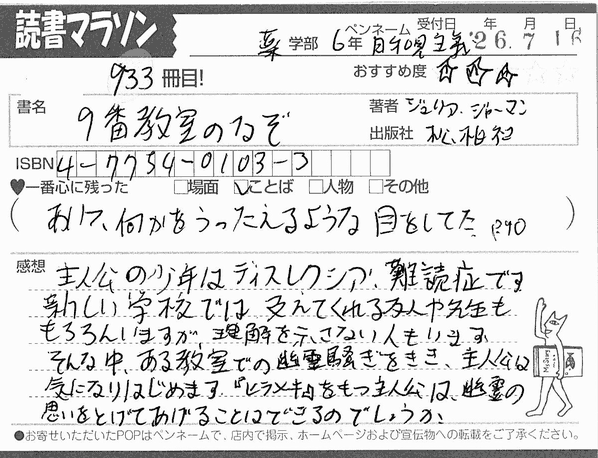 読書マラソン
受付日 年 月 日
薬 学部 6年 ペンネーム 自分兇主義 '26.7.16
933冊目! おすすめ度 ☆☆☆
書名 9番教室のなぞ
著者 ジュリア・ジャーマン
出版社 松柏社
ISBN 4-7754-0103-3
♥一番心に残った □場面 ☑ことば □人物 □その他
(あいつ、何かをうったえるような目をしてた P.90)
感想
主人公の少年はディスレクシア、難読症です
新しい学校では支えてくれる友人や先生も
もろろんいますが、理解を示さない人もいます。
そんな中、ある教室での幽霊騒ぎをきき、主人公は
気になりはじめます。『ヒラメキ』をもつ主人公は、幽霊の
思いをとげてあげることはできるのでしょうか。
●お寄せいただいたPOPはペンネームで、店内で掲示、ホームページおよび宣伝物への転載をご了承ください。